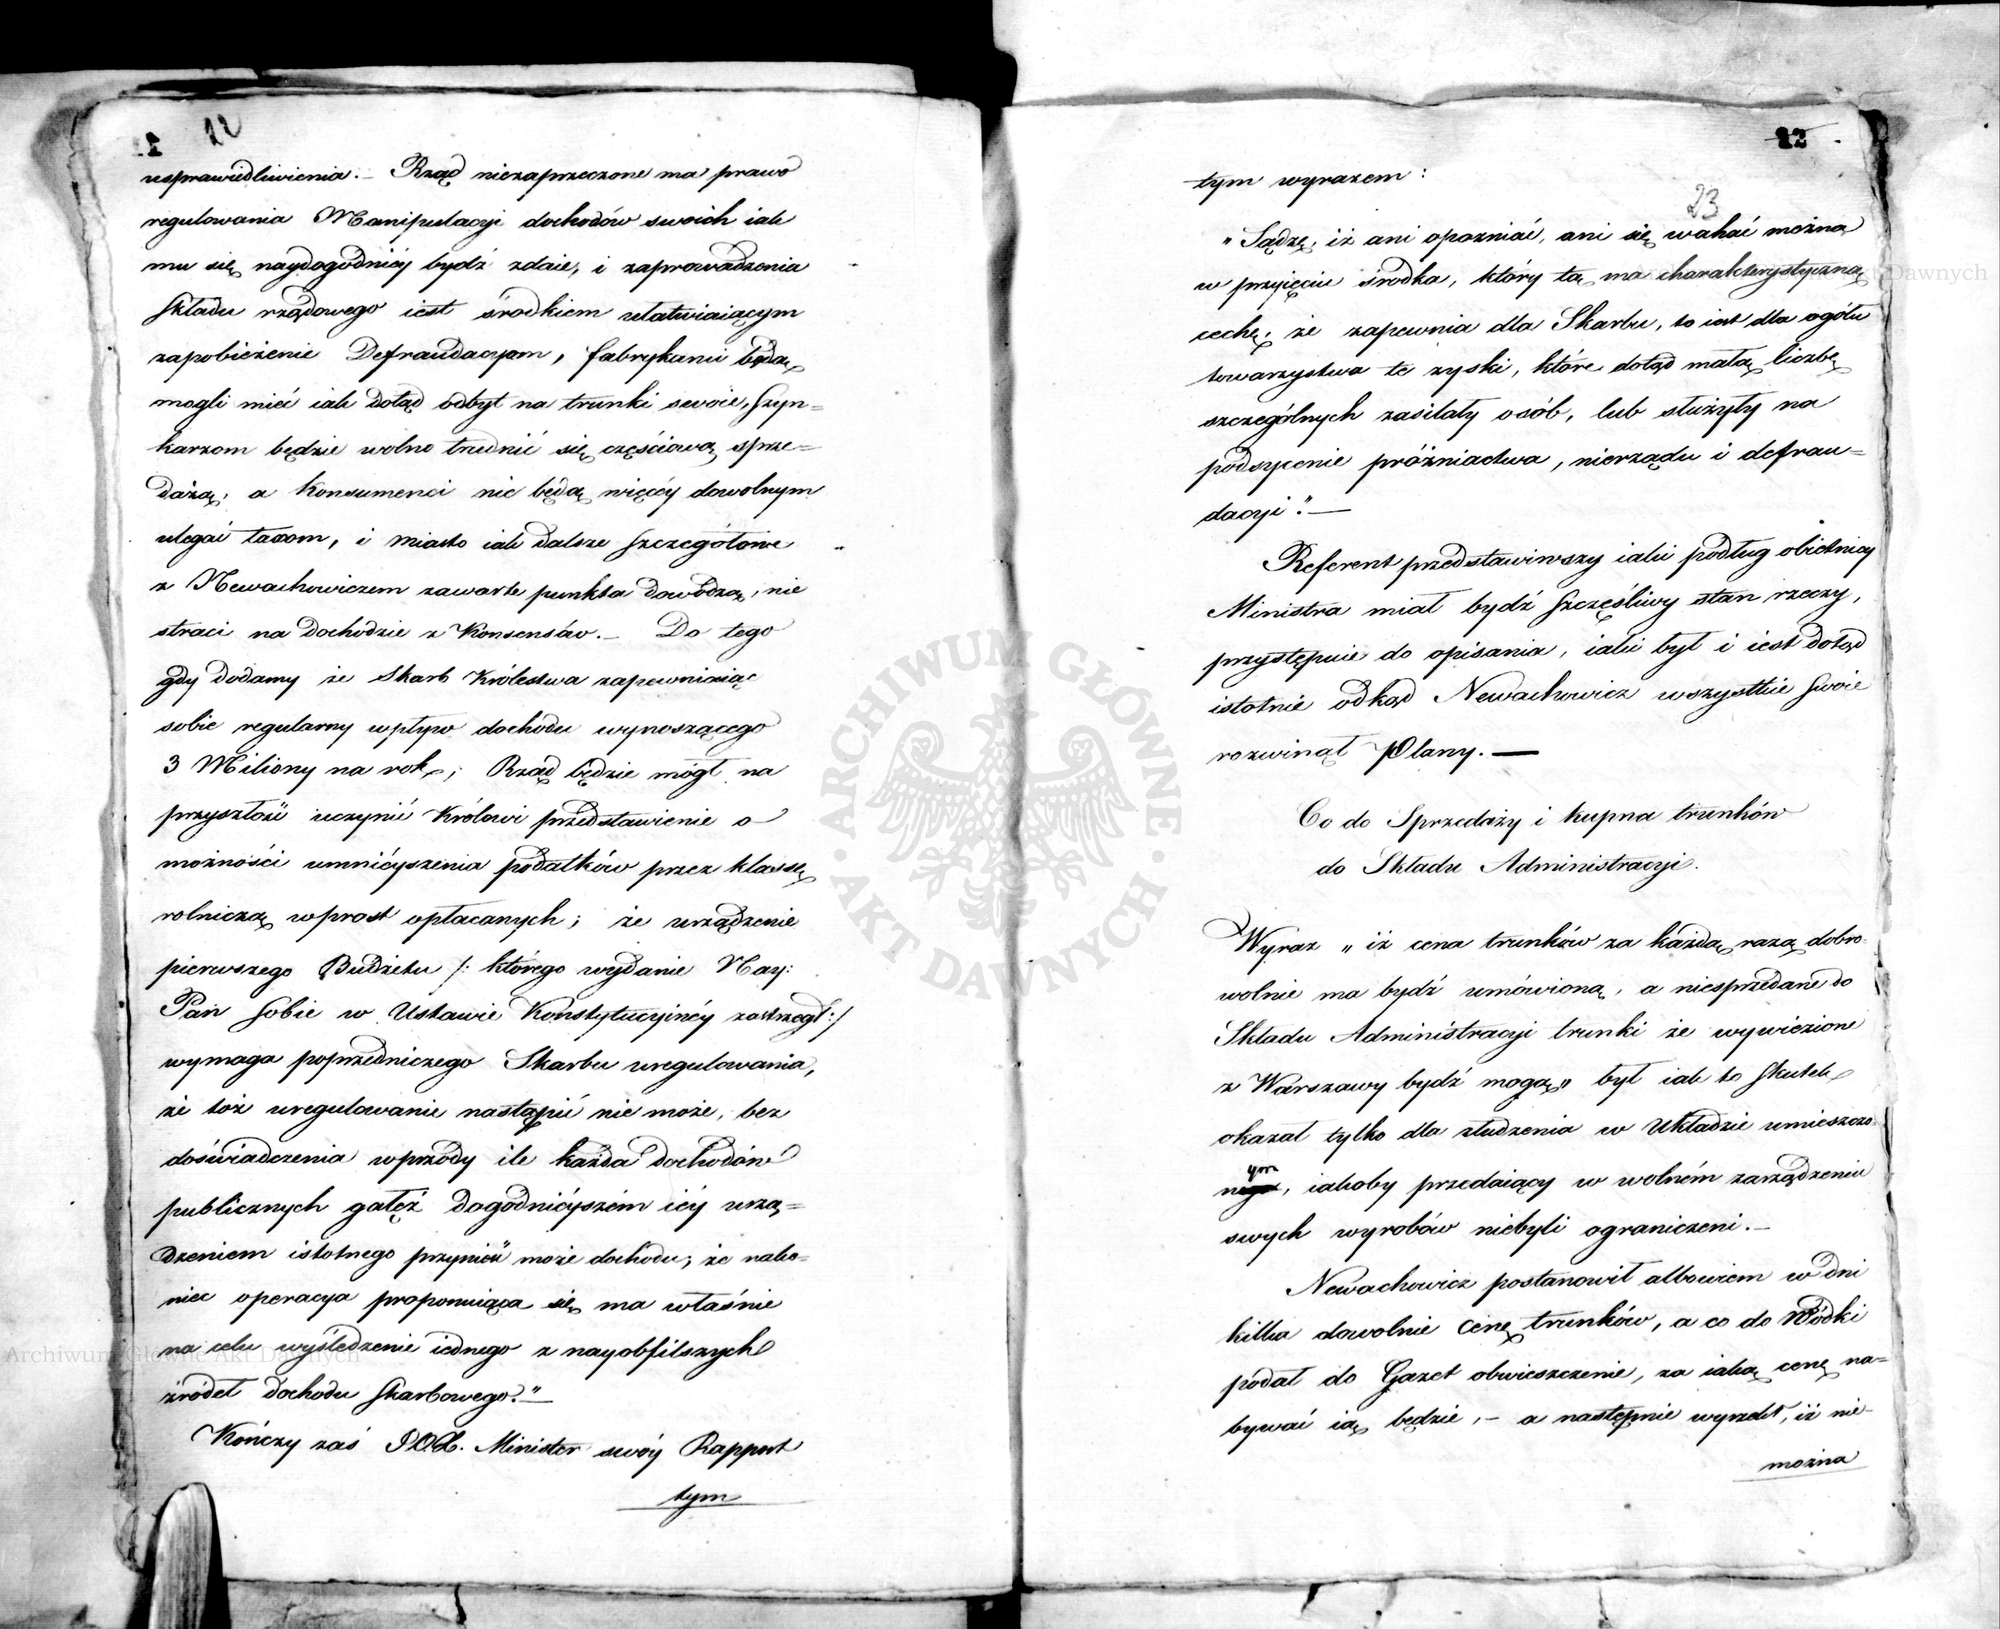 22
usprawiedliwienia. – Rząd niezaprzeczone ma prawo
regulowania Manipulacyi dochodów swoich iak
mu się naydogodniéy bydź zdaie, i zaprowadzenia
Składu rządowego iest środkiem ułatwiaiącym
zapobieżenie Defraudacyom, fabrykanci będą
mogli mieć iak dotąd odbyt na trunki swoie, Szyn=
karzom będzie wolno trudnić się częściową sprze=
dażą, a Konsumenci nie będą więcéy dowolnym
ulegać taxom, i miasto iak dalsze szczegółowe
z Newachowiczem zawarte punkta dowodzą, nie
straci na dochodzie z Konsensów. – Do tego
gdy dodamy że Skarb Królestwa zapewniaiąc
sobie regularny wpływ dochodu wynoszącego
3 Miliony na rok; Rząd będzie mógł na
przyszłość uczynić Królowi przedstawienie o
możności umniéyszenia podatków przez klassę
rolniczą wprost opłacanych; że urządzenie
pierwszego Budżetu /: którego wydanie Nay:
Pan sobie w Ustawie Konstytucyinéy zastrzegł :/
wymaga poprzedniczego Skarbu uregulowania,
że toż uregulowanie nastąpić nie może, bez
doświadczenia wprzódy ile każda dochodów
publicznych gałęź dogodniéyszém iéy urzą=
dzeniem istotnego przynieść może dochodu; że nako=
niec operacya proponuiąca się ma właśnie
na celu wyśledzenie iednego z nayobfitszych
źródeł dochodu Skarbowego." –
Kończy zaś J.O.X. Minister swóy Rapport
tym
22
23
tym wyrazem:
„Sądzę, iż ani opoźniać, ani się wahać można
w przyięciu środka, który tą ma charakterystyczną
cechę, że zapewnia dla Skarbu, to iest dla ogółu
towarzystwa te zyski, które dotąd małą liczbę
szczególnych zasilały osób, lub służyły na
podsycenie próżniactwa, nierządu i defrau=
dacyi". –
Referent przedstawiwszy iaki podług obietnicy
Ministra miał bydź szczęśliwy stan rzeczy,
przystępuie do opisania, iaki był i iest dotąd
istotnie odkąd Newachowicz wszystkie swoie
rozwinął Plany. –
Co do Sprzedaży i kupna trunków
do Składu Administracyi.
Wyraz „iż cena trunków za każdą razą dobro-
wolnie ma bydź umówioną, a niesprzedane do
Składu Administracyi trunki że wywiezione
z Warszawy bydź mogą" był iak to skutek
okazał tylko dla złudzenia w Układzie umieszczo-
nym, iakoby przedaiący w wolném zarządzeniu
swych wyrobów niebyli ograniczeni. –
Newachowicz postanowił albowiem w dni
kilka dowolnie cenę trunków, a co do Wódki
podał do Gazet obwieszczenie, za iaką cenę na=
bywać ią będzie, – a następnie wyrzekł, iż nie-
można
ARCHIWUM GŁÓWNE AKT DAWNYCH
Archiwum Główne Akt Dawnych